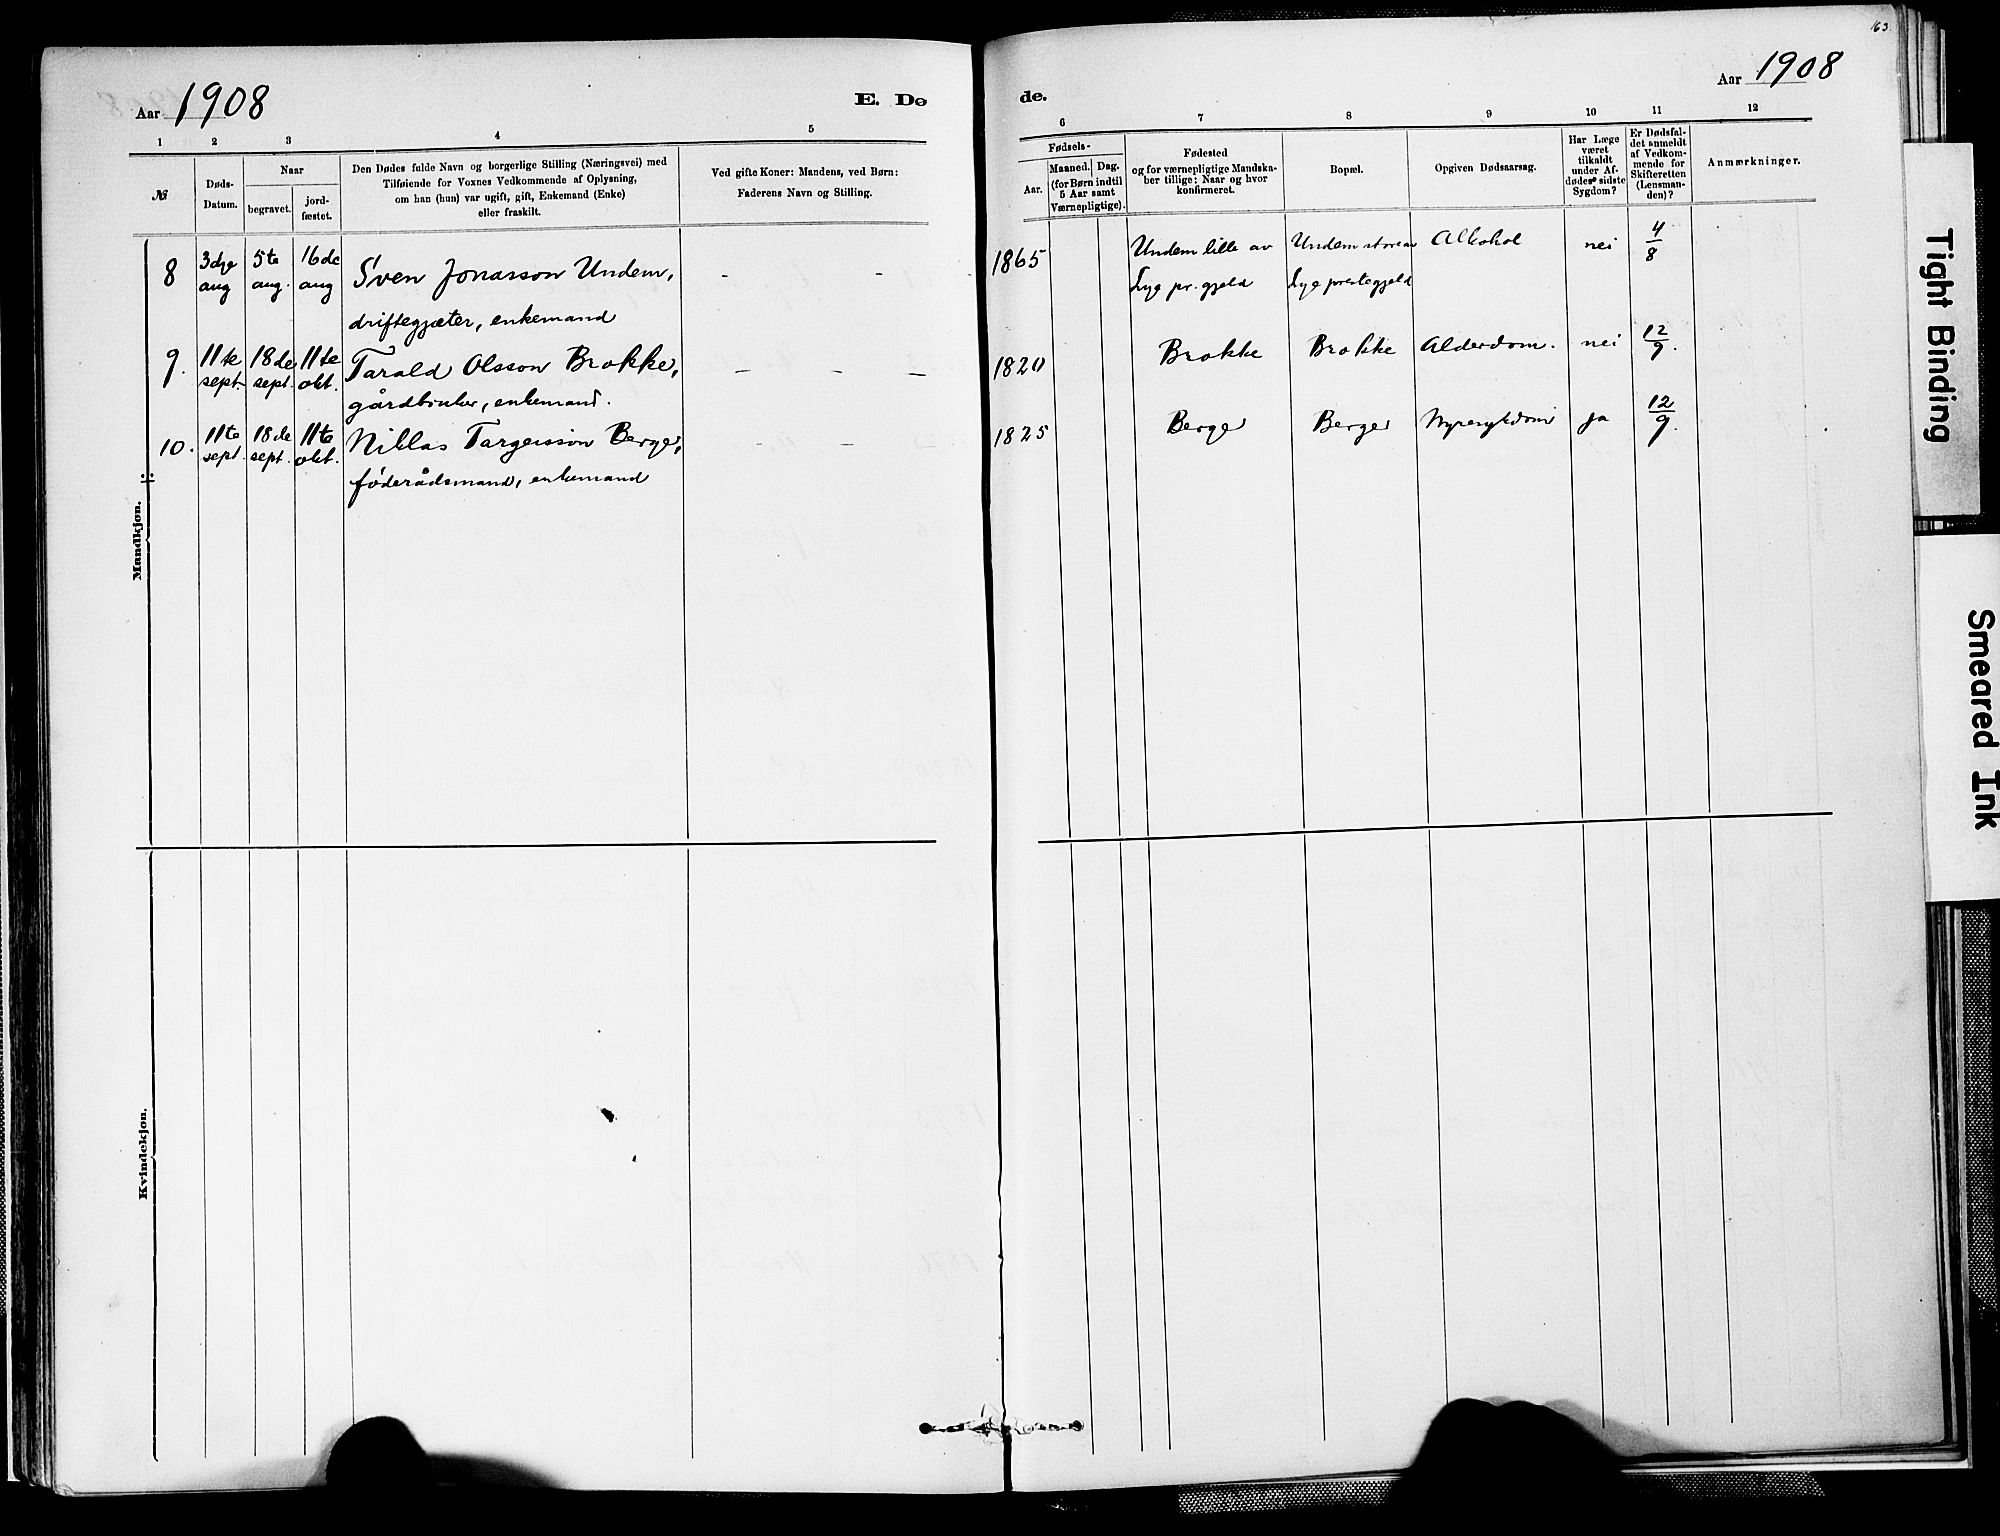 Aar 1908
E. Dø
1 2 3 4 5
№
Døds-
Datum.
Naar
begravet.
jord-
fæstet.
Den Dødes fulde Navn og borgerlige Stilling (Næringsvei) med
Tilføiende for Voxnes Vedkommende af Oplysning,
om han (hun) var ugift, gift, Enkemand (Enke)
eller fraskilt.
Ved gifte Koner: Mandens, ved Børn:
Faderens Navn og Stilling.
Mandkjøn.
8 3dje aug 5te aug. 16de aug Sven Jonasson Undem, - -
driftegjæter, enkemand
9. 11te sept. 18de sept. 11te okt. Tarald Olsson Brokke, - - -
gårdbruker, enkemand.
10. 11te sept. 18de sept. 11te okt. Niklas Targeisson Berge, - -
føderådsmand, enkemand
Kvindekjøn.
163.
Aar 1908
de.
6 7 8 9 10 11 12
Fødsels-
Aar.
Maaned. Dag.
(for Børn indtil
5 Aar samt
Værnepligtige).
Fødested
og for værnepligtige Mandska-
ber tillige: Naar og hvor
konfirmeret.
Bopæl.
Opgiven Dødsaarsag.
Har Læge
været
tilkaldt
under Af-
dødes sidste
Sygdom?
Er Dødsfal-
det anmeldt
af Vedkom-
mende for
Skifteretten
(Lensman-
den)?
Anmærkninger.
1865 Undem lille av Undem store av Alkohol nei 4/8
Lye pr. gjeld Lye prestegjeld
1820 Brokke Brokke Alderdom. nei 12/9.
1825 Berge Berge Nyresykdom ja 12/9.
Tight Binding
Smeared Ink